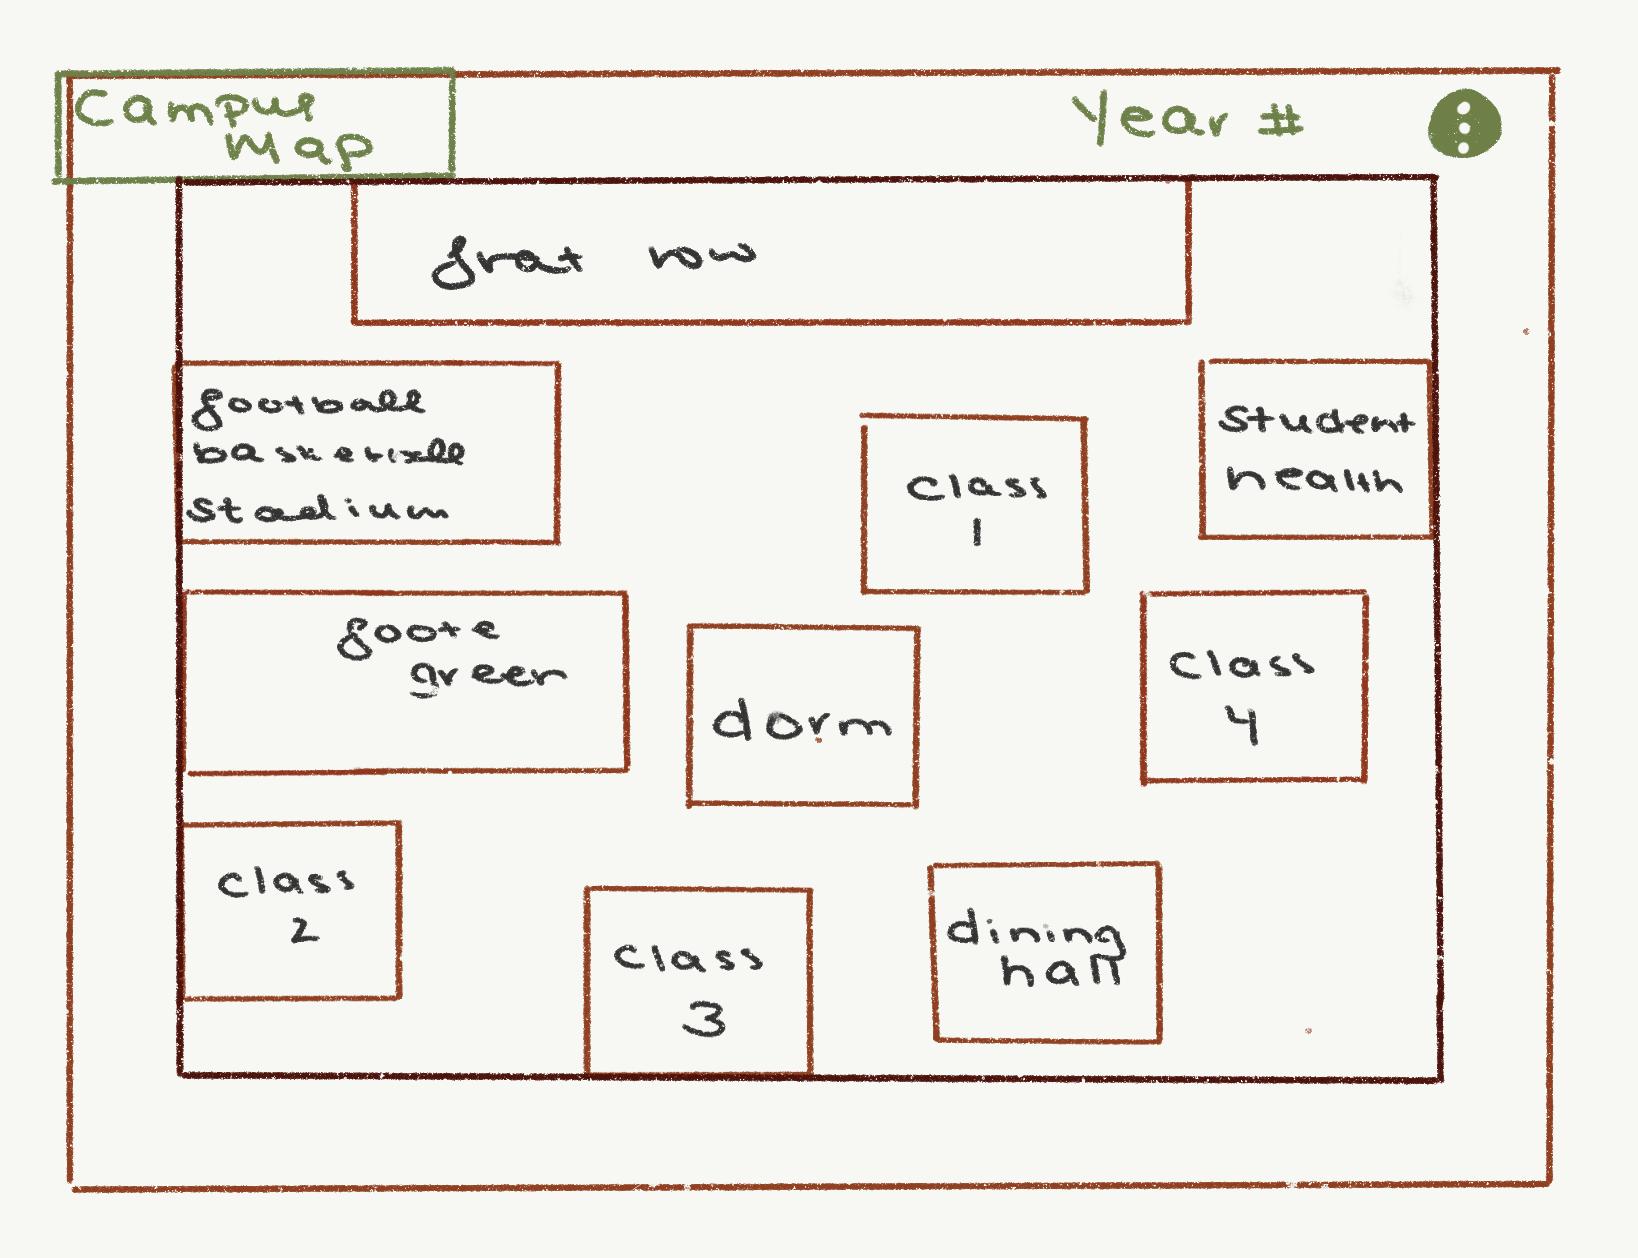 Campus
Map
Year #
frat row
football
basketball
stadium
class
1
student
health
foote
green
dorm
class
4
class
2
class
3
dining
hall